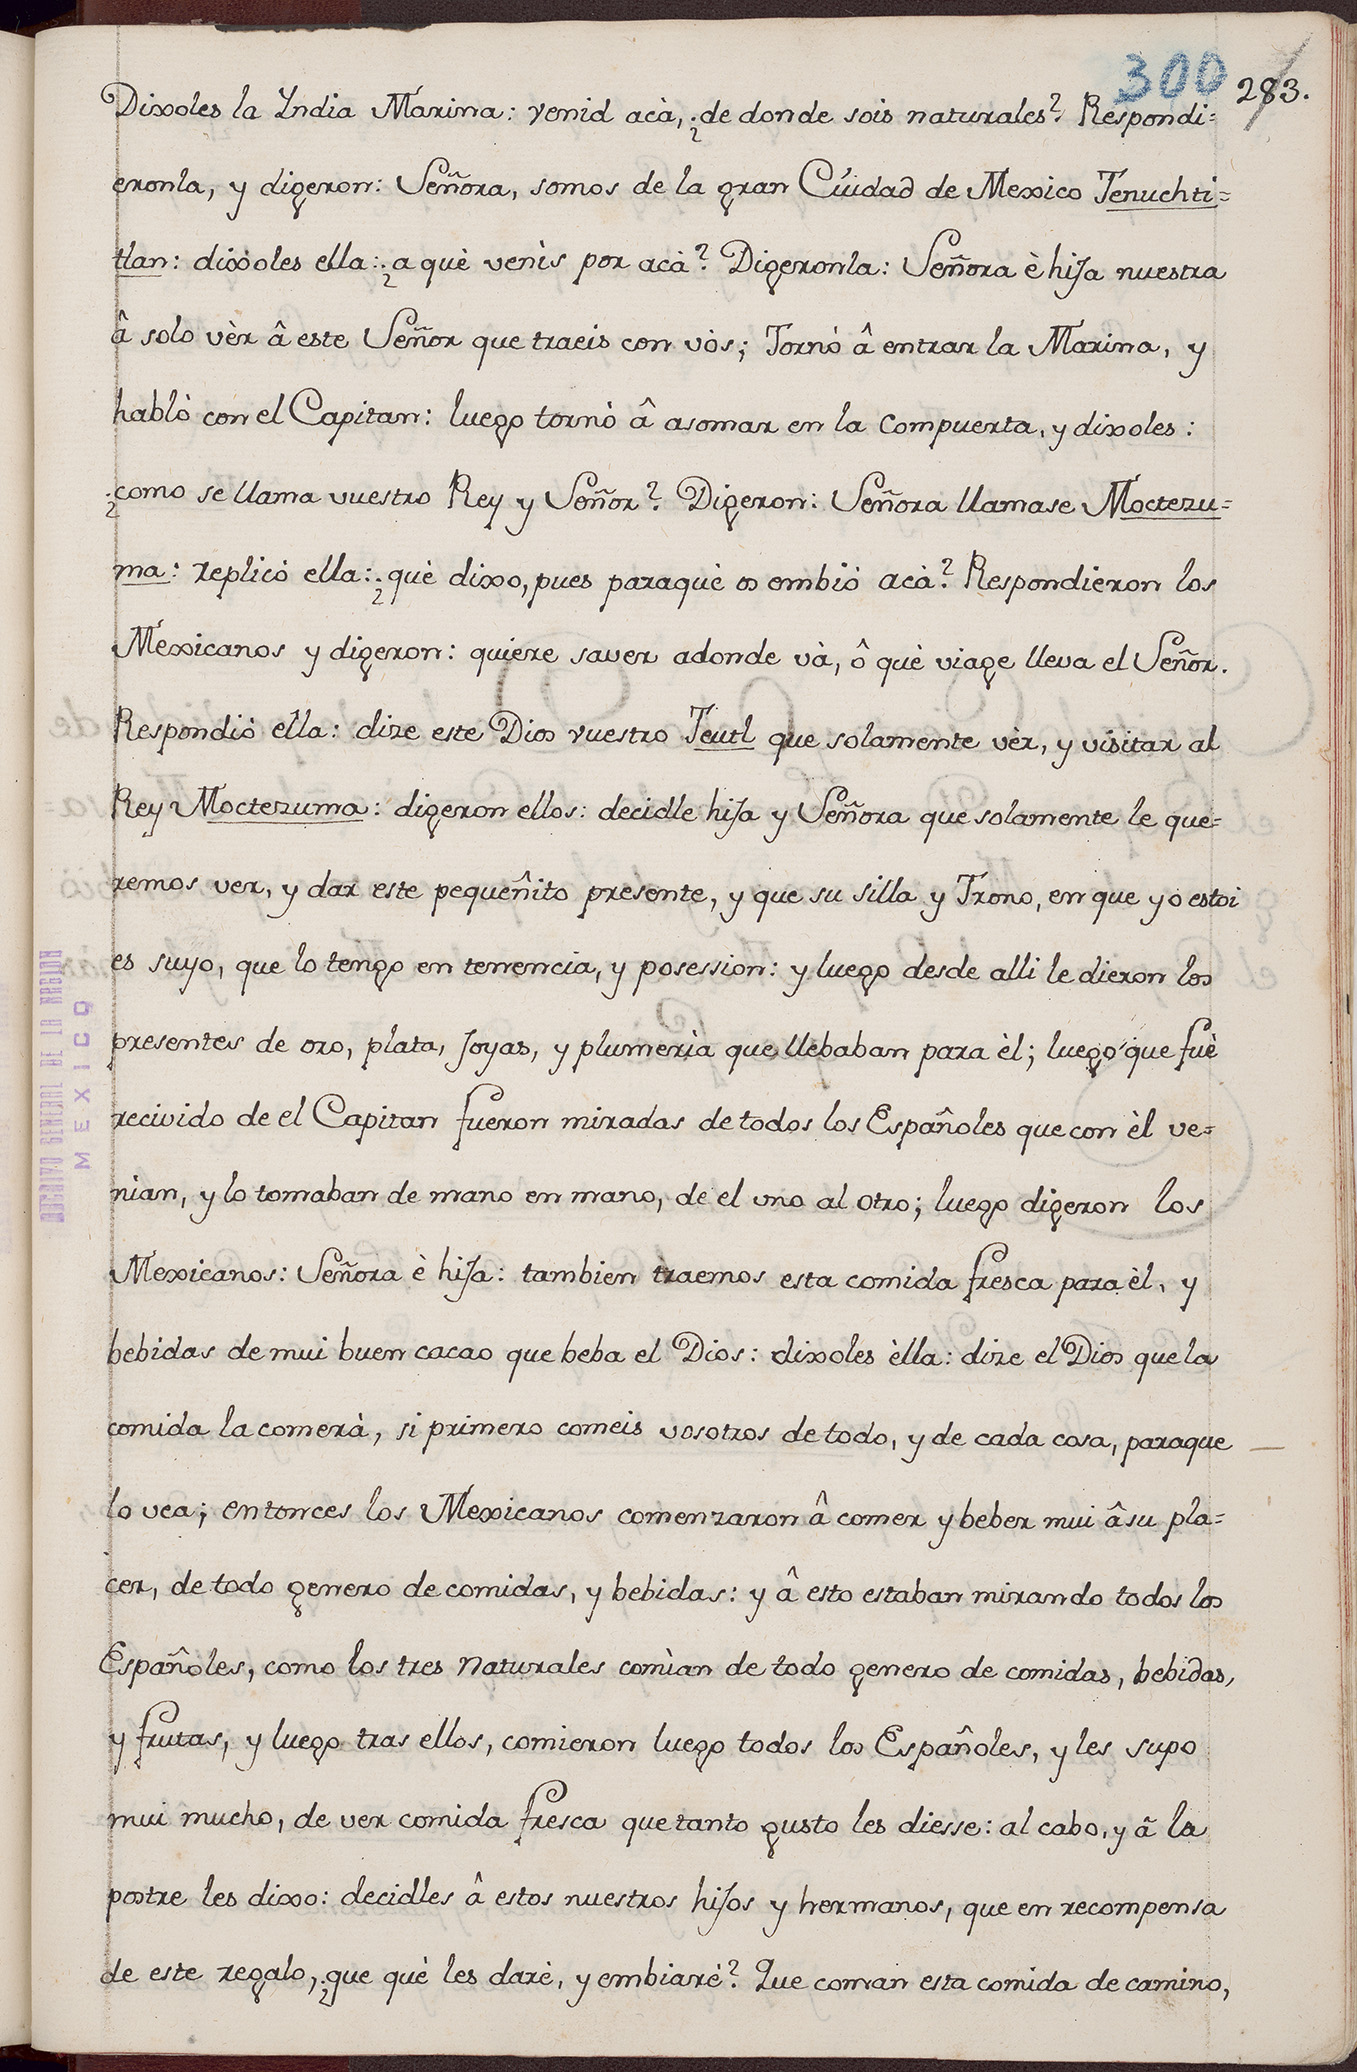 300 283.
Dixoles la Yndia Marina: venid acà, ¿de donde sois naturales? Respondi=
eronla, y digeron: Señora, somos de la gran Ciudad de Mexico Tenuchti=
tlan: dixoles ella: ¿a què venìs por acà? Digeronla: Señora è hija nuestra
â solo vèr â este Señor que traeis con vòs; Tornò â entrar la Marina, y
hablò con el Capitan: luego tornò â asomar en la compuerta, y dixoles:
¿como se llama vuestro Rey y Señor? Digeron: Señora llamase Moctezu=
ma: replicò ella: ¿què dixo, pues paraquè os embiò acà? Respondieron los
Mexicanos y digeron: quiere saver adonde và, ô què viage lleva el Señor.
Respondiò ella: dize este Dios vuestro Teutl que solamente vèr, y visitar al
Rey Moctezuma: digeron ellos: decidle hija y Señora que solamente le que=
remos ver, y dar este pequeñito presente, y que su silla y Trono, en que yo estoi
es suyo, que lo tengo en tenencia, y posession: y luego desde alli le dieron los
presentes de oro, plata, Joyas, y plumerìa que llebaban para èl; luego que fuè
recivido de el Capitan fueron miradas de todos los Españoles que con èl ve=
nian, y lo tomaban de mano en mano, de el uno al otro; luego digeron los
Mexicanos: Señora è hija: tambien traemos esta comida fresca para èl, y
bebidas de mui buen cacao que beba el Dios: dixoles èlla: dize el Dios que la
comida la comerà, si primero comeis vosotros de todo, y de cada cosa, paraque
lo vea; entonces los Mexicanos comenzaron â comer y beber mui â su pla=
cer, de todo genero de comidas, y bebidas: y â esto estaban mirando todos los
Españoles, como los tres Naturales comìan de todo genero de comidas, bebidas,
y frutas, y luego tras ellos, comieron luego todos los Españoles, y les supo
mui mucho, de ver comida fresca que tanto gusto les diesse: al cabo, y â la
postre les dixo: decidles â estos nuestros hijos y hermanos, que en recompensa
de este regalo, ¿que què les darè, y embiarè? Que coman esta comida de camino,
ARCHIVO GENERAL DE LA NACION
MEXICO